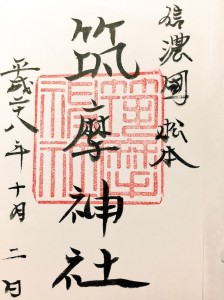 信濃國松本
筑摩神社
平成二十八年十月二日